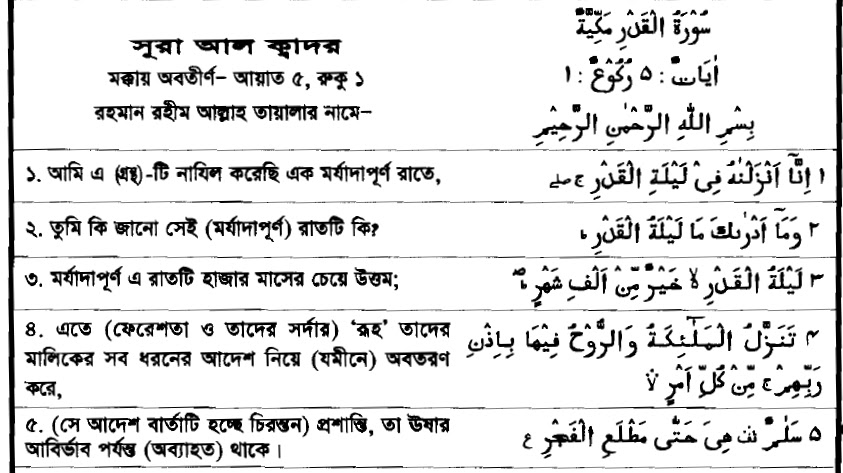 সূরা আল ক্বাদর
মক্কায় অবতীর্ণ– আয়াত ৫, রুকু ১
রহমান রহীম আল্লাহ তায়ালার নামে–
سُوْرَةُ الْقَدْرِ مَكِّيَّةٌ
اٰيَاتٌ : ٥ رُكُوْعٌ : ١
بِسْمِ اللّٰهِ الرَّحْمٰنِ الرَّحِيْمِ
১. আমি এ (গ্রন্থ)-টি নাযিল করেছি এক মর্যাদাপূর্ণ রাতে,
١ اِنَّآ اَنْزَلْنٰهُ فِىْ لَيْلَةِ الْقَدْرِ ج صلے
২. তুমি কি জানো সেই (মর্যাদাপূর্ণ) রাতটি কি?
٢ وَمَآ اَدْرٰىكَ مَا لَيْلَةُ الْقَدْرِ ؕ
৩. মর্যাদাপূর্ণ এ রাতটি হাজার মাসের চেয়ে উত্তম;
٣ لَيْلَةُ الْقَدْرِ لا خَيْرٌ مِّنْ اَلْفِ شَهْرٍ ؕ
৪. এতে (ফেরেশতা ও তাদের সর্দার) ‘রূহ’ তাদের
মালিকের সব ধরনের আদেশ নিয়ে (যমীনে) অবতরণ
করে,
۴ تَنَزَّلُ الْمَلٰٓئِكَةُ وَالرُّوْحُ فِيْهَا بِاِذْنِ
رَبِّهِمْ ج مِّنْ كُلِّ اَمْرٍ لا
৫. (সে আদেশ বার্তাটি হচ্ছে চিরন্তন) প্রশান্তি, তা ঊষার
আবির্ভাব পর্যন্ত (অব্যাহত) থাকে।
٥ سَلٰمٌ قف هِىَ حَتّٰى مَطْلَعِ الْفَجْرِ ع